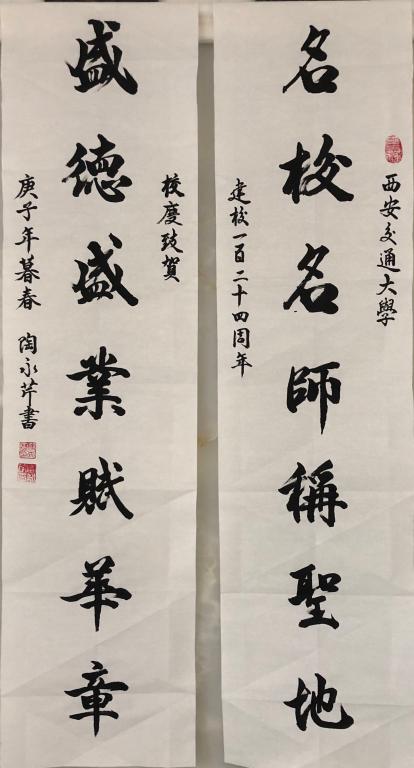 西安交通大學
名校名師稱聖地
建校一百二十四周年
校慶致賀
盛德盛業賦華章
庚子年暮春 陶永芹書